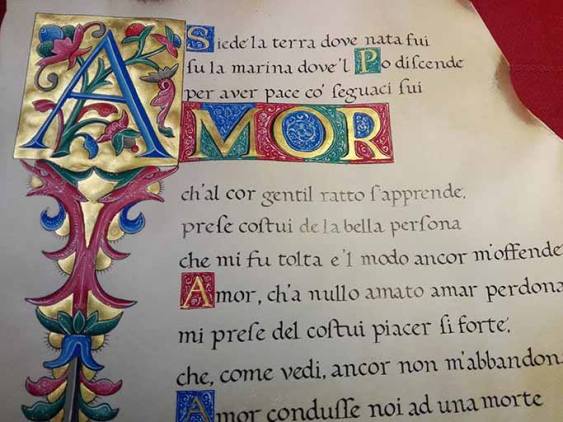 Siede la terra dove nata fui
ſu la marina dove'l Po diſcende
per aver pace co' ſeguaci ſui
AMOR
ch'al cor gentil ratto ſ'apprende.
preſe coſtui de la bella perſona
che mi fu tolta e'l modo ancor m'offende
Amor, ch'a nullo amato amar perdona
mi preſe del coſtui piacer ſi forte,
che, come vedi, ancor non m'abbandon
Amor conduſſe noi ad una morte